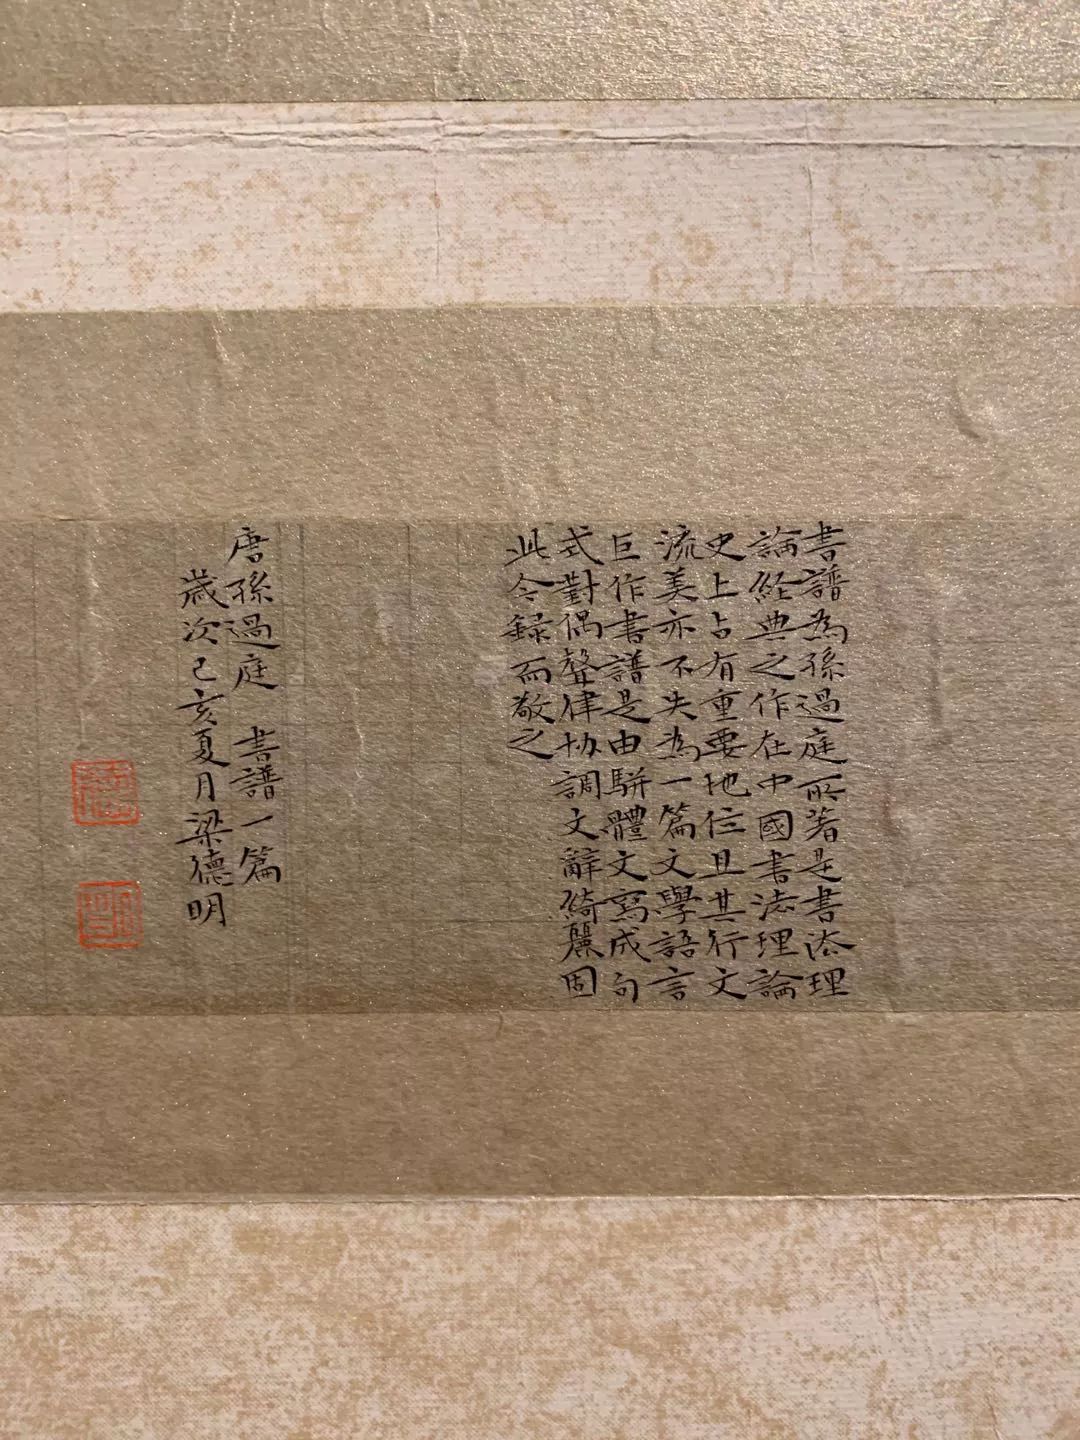 書譜為孫過庭所著是書法理
論經典之作在中國書法理論
史上占有重要地位且其行文
流美亦不失為一篇文學語言
巨作書譜是由駢體文寫成句
式對偶聲律協調文辭綺麗固
此今録而敬之
唐孫過庭 書譜一篇
歲次己亥夏月梁德明